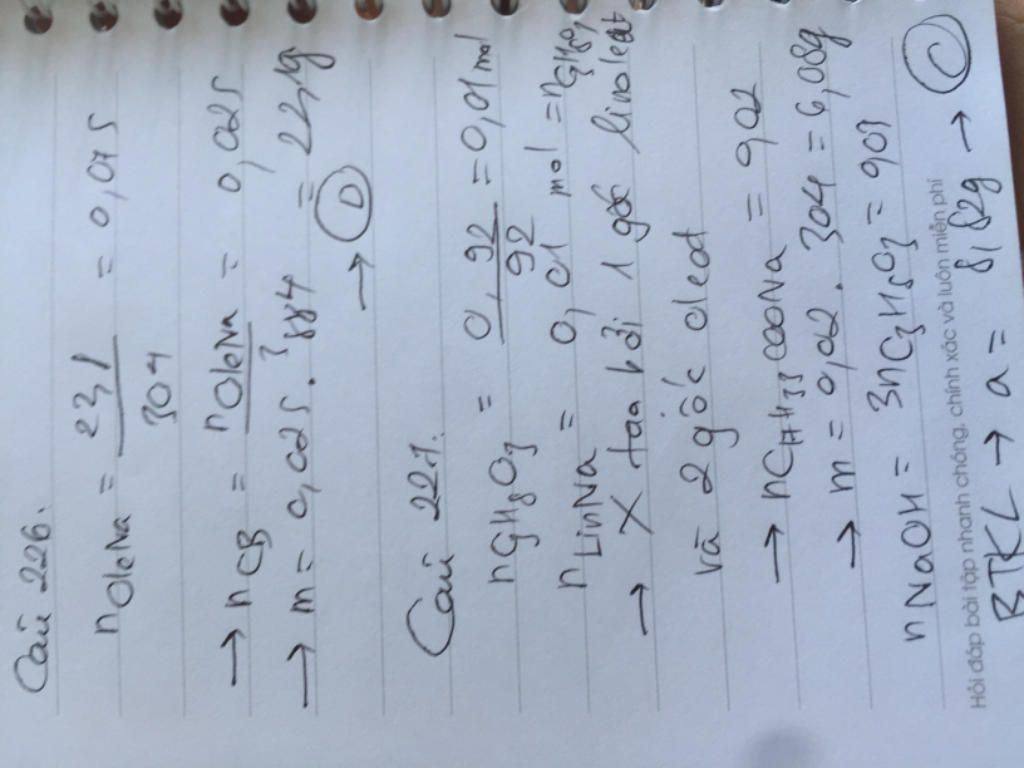 Câu 226.
nOleNa = 22,8 / 304 = 0,075
→ nCB = nOleNa / 3 = 0,025
→ m = 0,025 . 884 = 22,1g
→ D
Câu 227.
nC3H8O3 = 0,92 / 92 = 0,01 mol
nLinNa = 0,01 mol = nC3H8O3
→ X tạo bởi 1 gốc linoleat
và 2 gốc oleat
→ nC17H33COONa = 0,02
→ m = 0,02 . 304 = 6,08g
nNaOH = 3nC3H8O3 = 0,03
Hỏi đáp bài tập nhanh chóng, chính xác và luôn miễn phí
BTKL → a = 8,82g → C